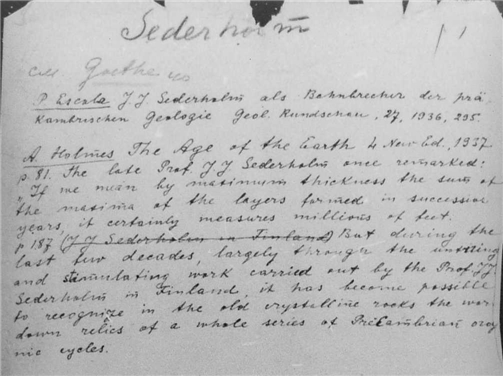 Sederholm
1
Goethe
P. Escola J. J. Sederholm als Bahnbrecher der prä
Kambrischen Geologie Geol. Rundschau, 27, 1936, 295.
A. Holmes The Age of the Earth 4 New Ed. 1937
p. 81. The late Prof. J J Sederholm once remarked:
"If we mean by maximum thickness the sum of
the maxima of the layers formed in succession
years, it certainly measures millions of feet.
p 187 (J J Sederholm in Finland) But during the
last few decades, largely through the untiring
and stimulating work carried out by the Prof. J.J.
Sederholm in Finland, it has become possible
to recognize in the old crystalline rocks the wor
down relics of a whole series of PreCambrian orog
nic cycles.